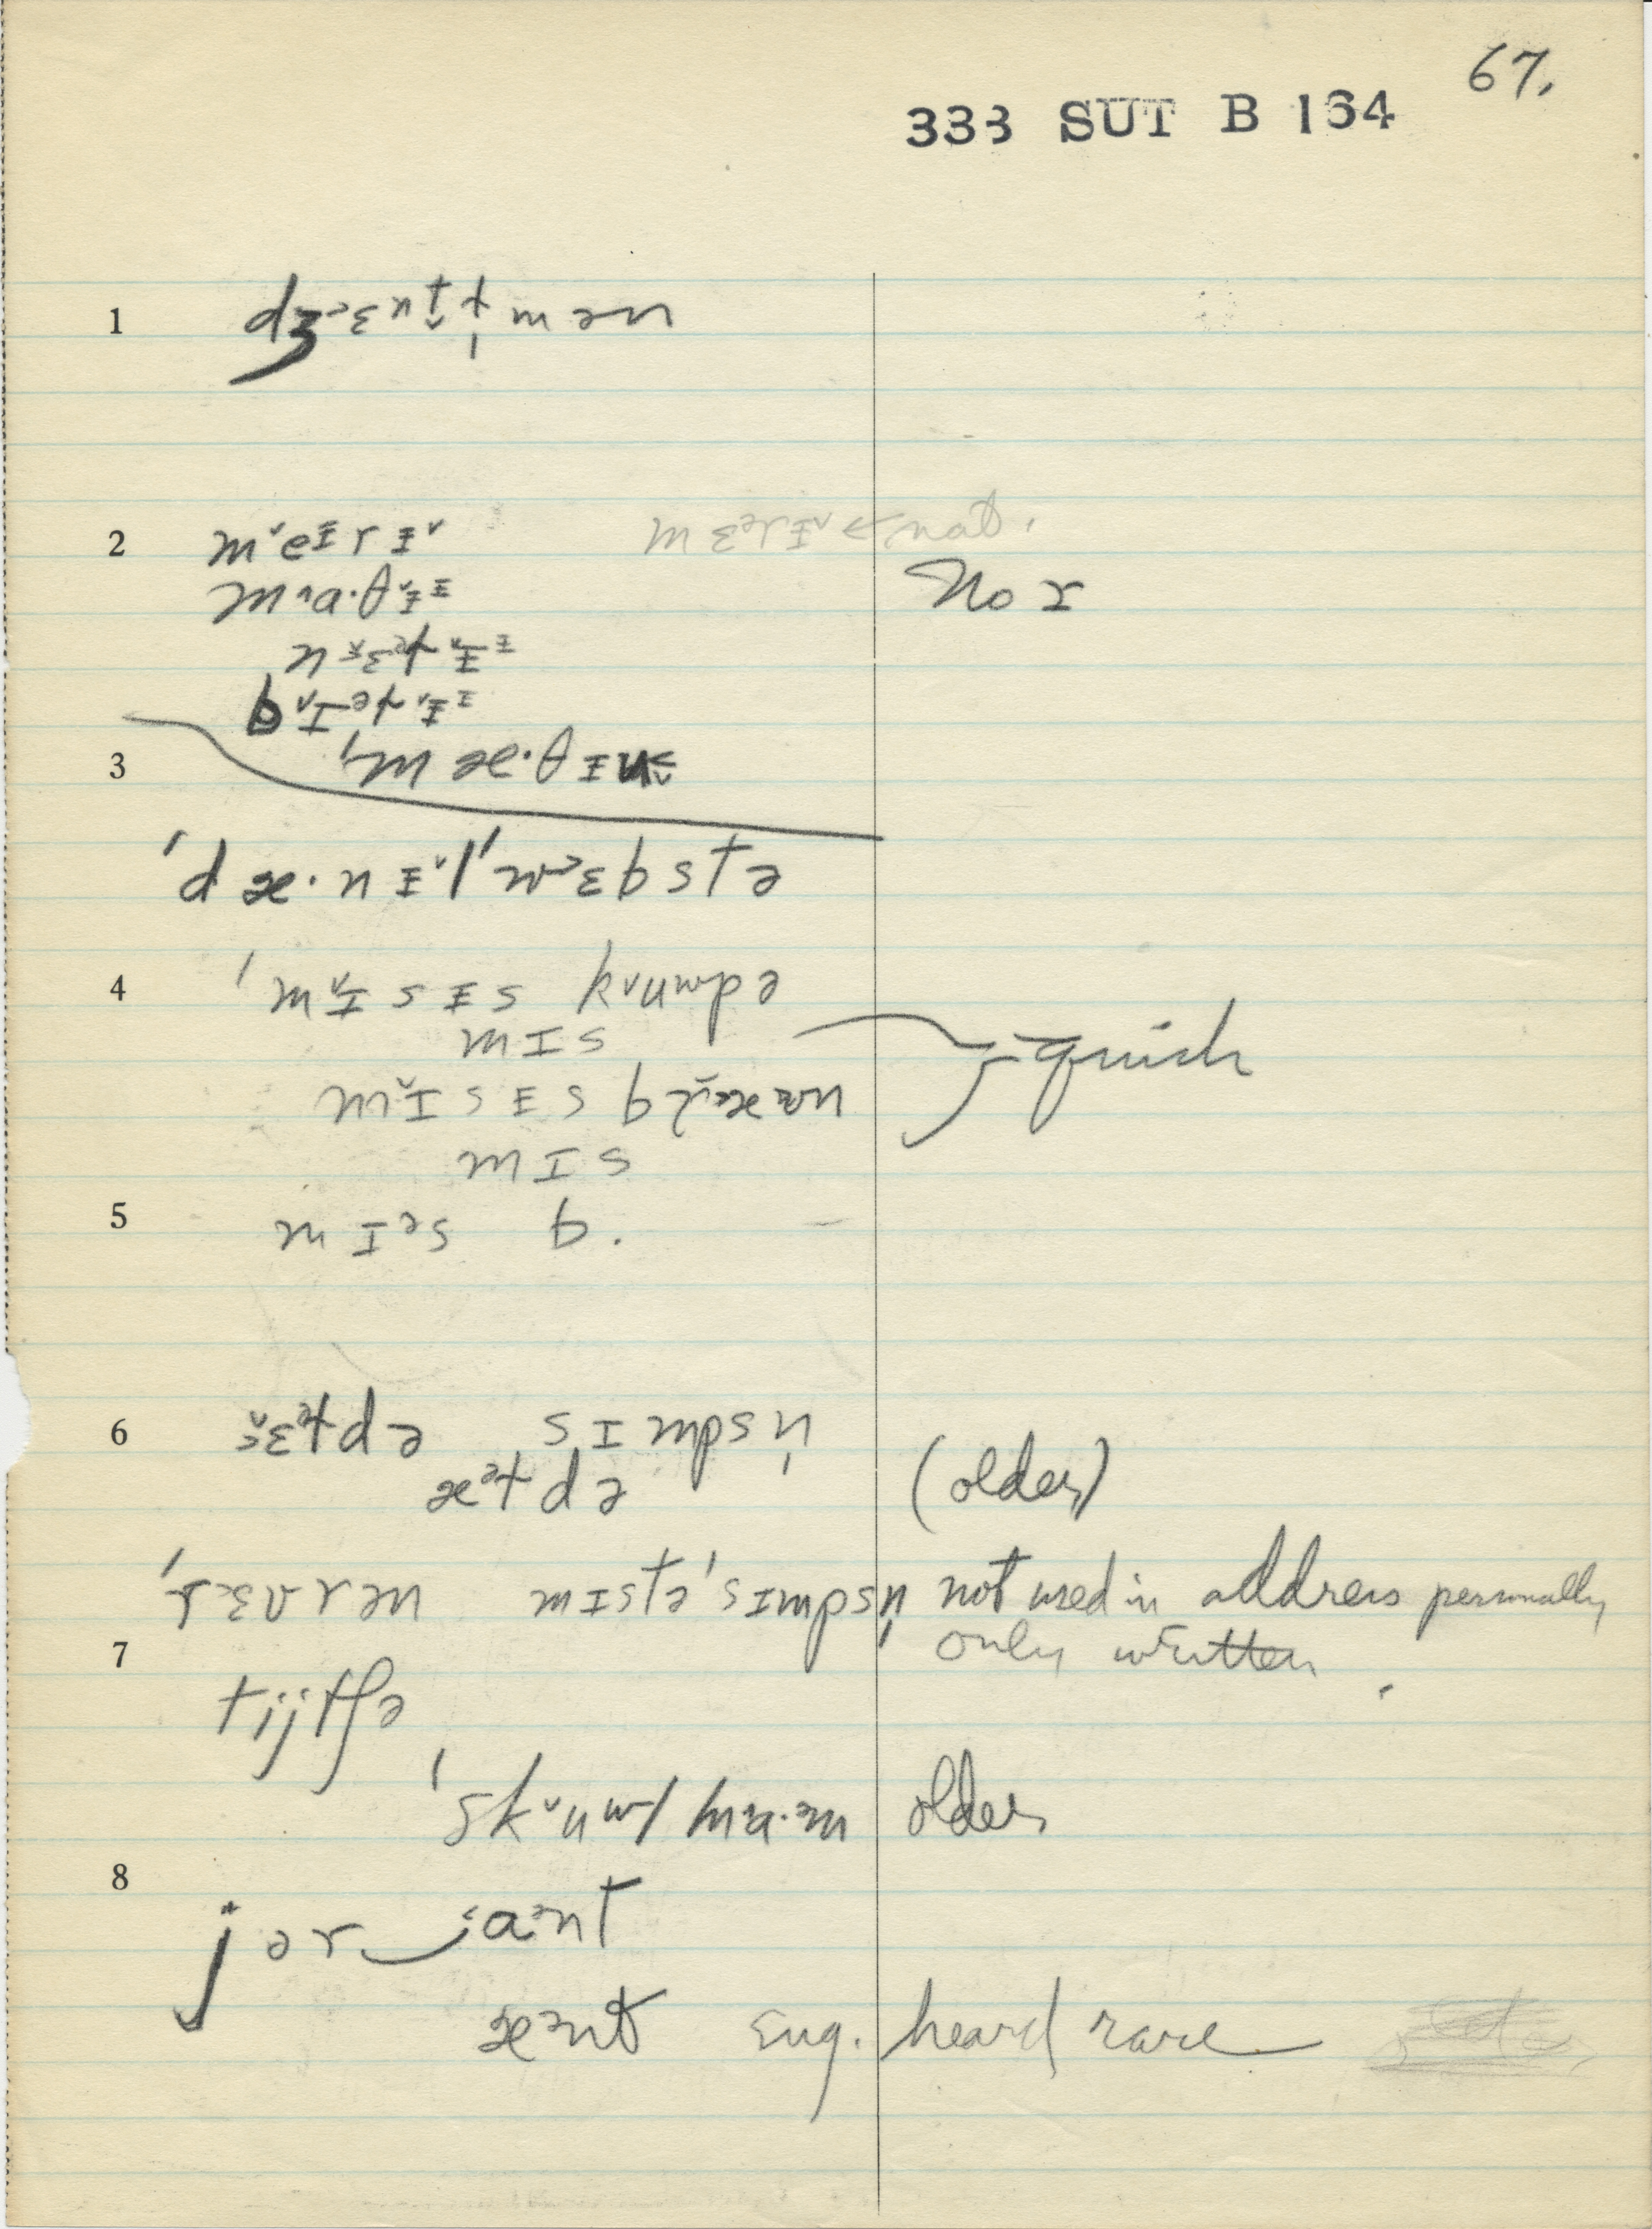 67.
333 SUT B 164
1 dʒ˂ɛnt̬ɫ̩mən
2 m˅eɪrɪ˅ mɛᵊrɪ˅ ← nat.
m˄a·θɪ˅ɪ No r
nɛᵊɫɪɪ
b˅ɪᵊɫɪ˅ɪ
3 'mæ·θɪu
'dæ·nɪ˅l 'w˃ɛbstə
4 'mɪ˅sɪs k˅uwpə
mɪs — quick
mɪ˅sɪs braʊn
mɪs
5 mɪᵊs b.
6 ɛᵊɫdə sɪmpsn̩
æᵊɫdə (older)
'rɛvrən mɪstə 'sɪmpsn̩ not used in address personally
7 only written.
tijtʃə
'sk˅uwl ma·m older
8
jər aᵊnt
æᵊnt Eng. heard rare